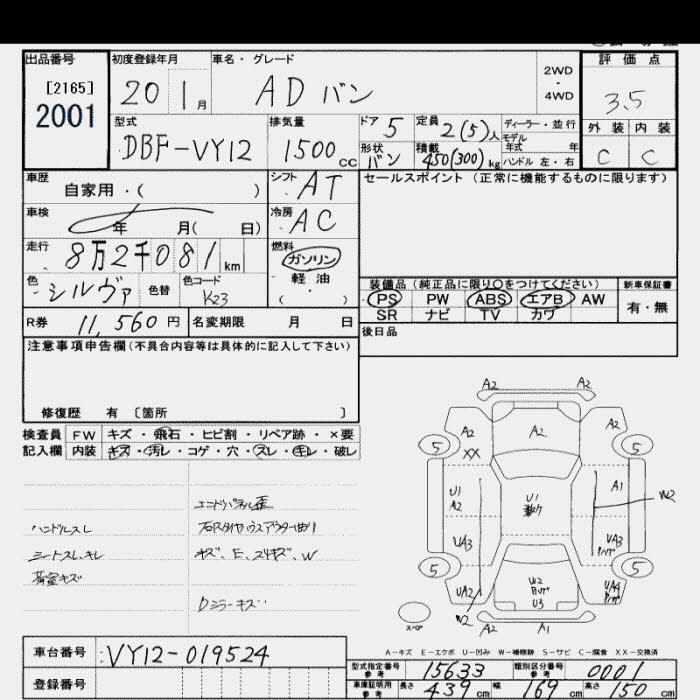 出品番号 初度登録年月 車名・グレード 評価点
[2165] 2001
20 1月 ADバン 2WD・4WD 3.5
型式 排気量 ドア 定員 ディーラー・並行 外装 内装
DBF-VY12 1500cc 5 2(5)人 モデル年式 年
形状 バン 積載 450(300)kg ハンドル 左・右 C C
車歴 自家用・( ) シフト AT セールスポイント (正常に機能するものに限ります)
車検 年 月( 日) 冷房 AC
走行 8万2千081km 燃料 ガソリン
軽油
・( )
色 シルヴァ 色替 色コード K23
装備品(純正品に限り○をつけてください) 新車保証書
PS PW ABS エアB AW 有・無
SR ナビ TV カワ
R券 11,560円 名変期限 月 日 後日品
注意事項申告欄(不具合内容等は具体的に記入して下さい)
修復歴 有 〔箇所 〕
検査員 FW キズ・飛石・ヒビ割・リペア跡・×要
記入欄 内装 キズ・汚レ・コゲ・穴・スレ・キレ・破レ
エンドパネル歪
ハンドルスレ
シートスレ、キレ キズ、E、スリキズ、W
荷室キズ
Dミラーキズ
A2 A2
A2 A2 A2
5 XX 5
U1 A2 U1 A1 W2
UA3 UA3
5 5
UA2 W2 U3 UA4
W2 A2 A1
スペア
A-キズ E-エクボ U-凹み W-補修跡 S-サビ C-腐食 XX-交換済
車台番号 VY12-019524
型式指定番号 参考 15633 類別区分番号 参考 0001
登録番号
車庫証明用 参考 長さ 439cm 幅 169cm 高さ 150cm